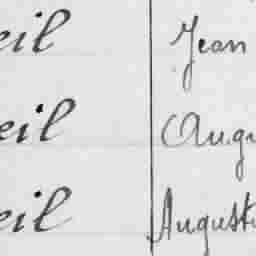 eil Jean
eil Augu
eil Augusti